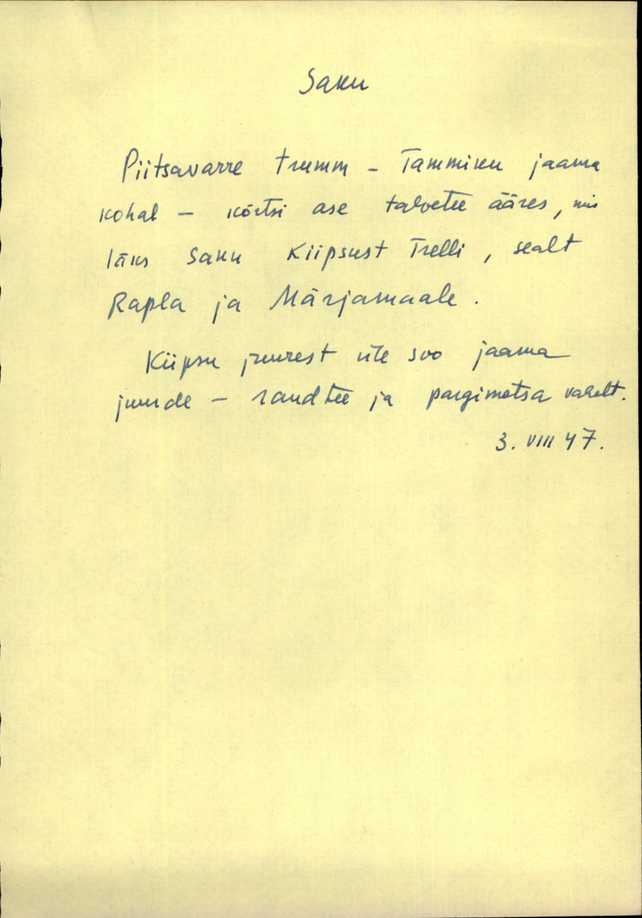 Saku
Piitsavarre trumm - Tammiku jaama
kohal - kõrtsi ase talvetee ääres, mis
läks Saku Kiipsust Trelli, sealt
Rapla ja Märjamaale.
Kiipsu juurest üle soo jaama
juurde - raudtee ja pargimetsa vahelt.
3. VIII 47.